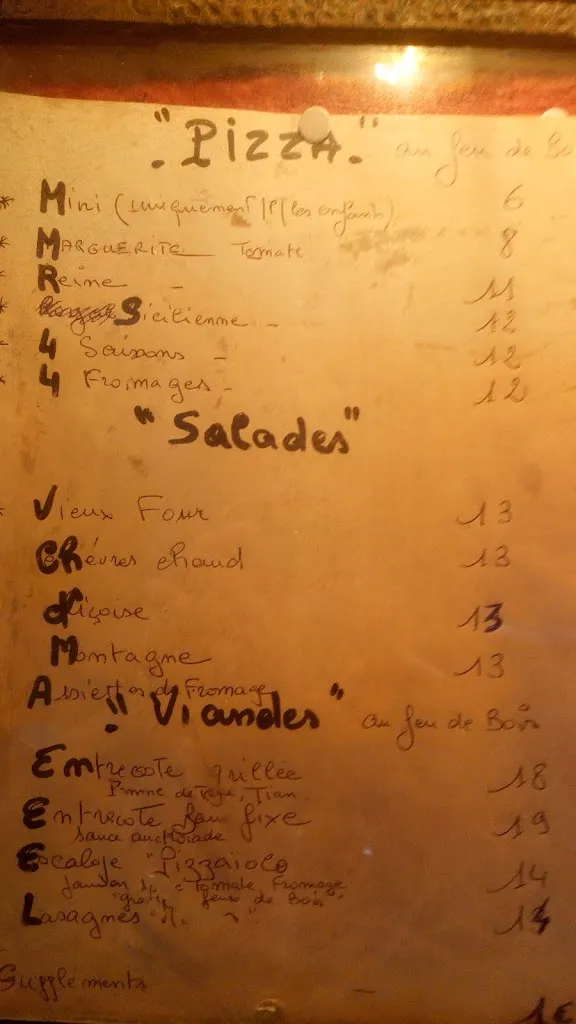 "PizzA." au feu de Bo
* Mini (uniquement P/les enfants) 6
* MARGUERITE Tomate 8
* Reine - 11
* Sicilienne - 12
* 4 Saisons - 12
* 4 Fromages - 12
"Salades"
* Vieux Four 13
CHèvres chaud 13
Niçoise 13
Montagne 13
Assiettes de Fromage
"Viandes" au feu de Bois
Entrecote grillée 18
Pomme de Terre, Tian
Entrecote fixe 19
sauce anchoïade
Escalope "Pizzaiolo 14
Tomate Fromage
feux de Bois"
Lasagnes "
Supplements 1€